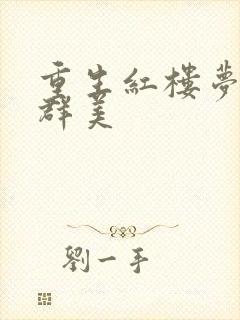 重生紅樓夢
群美
劉一手